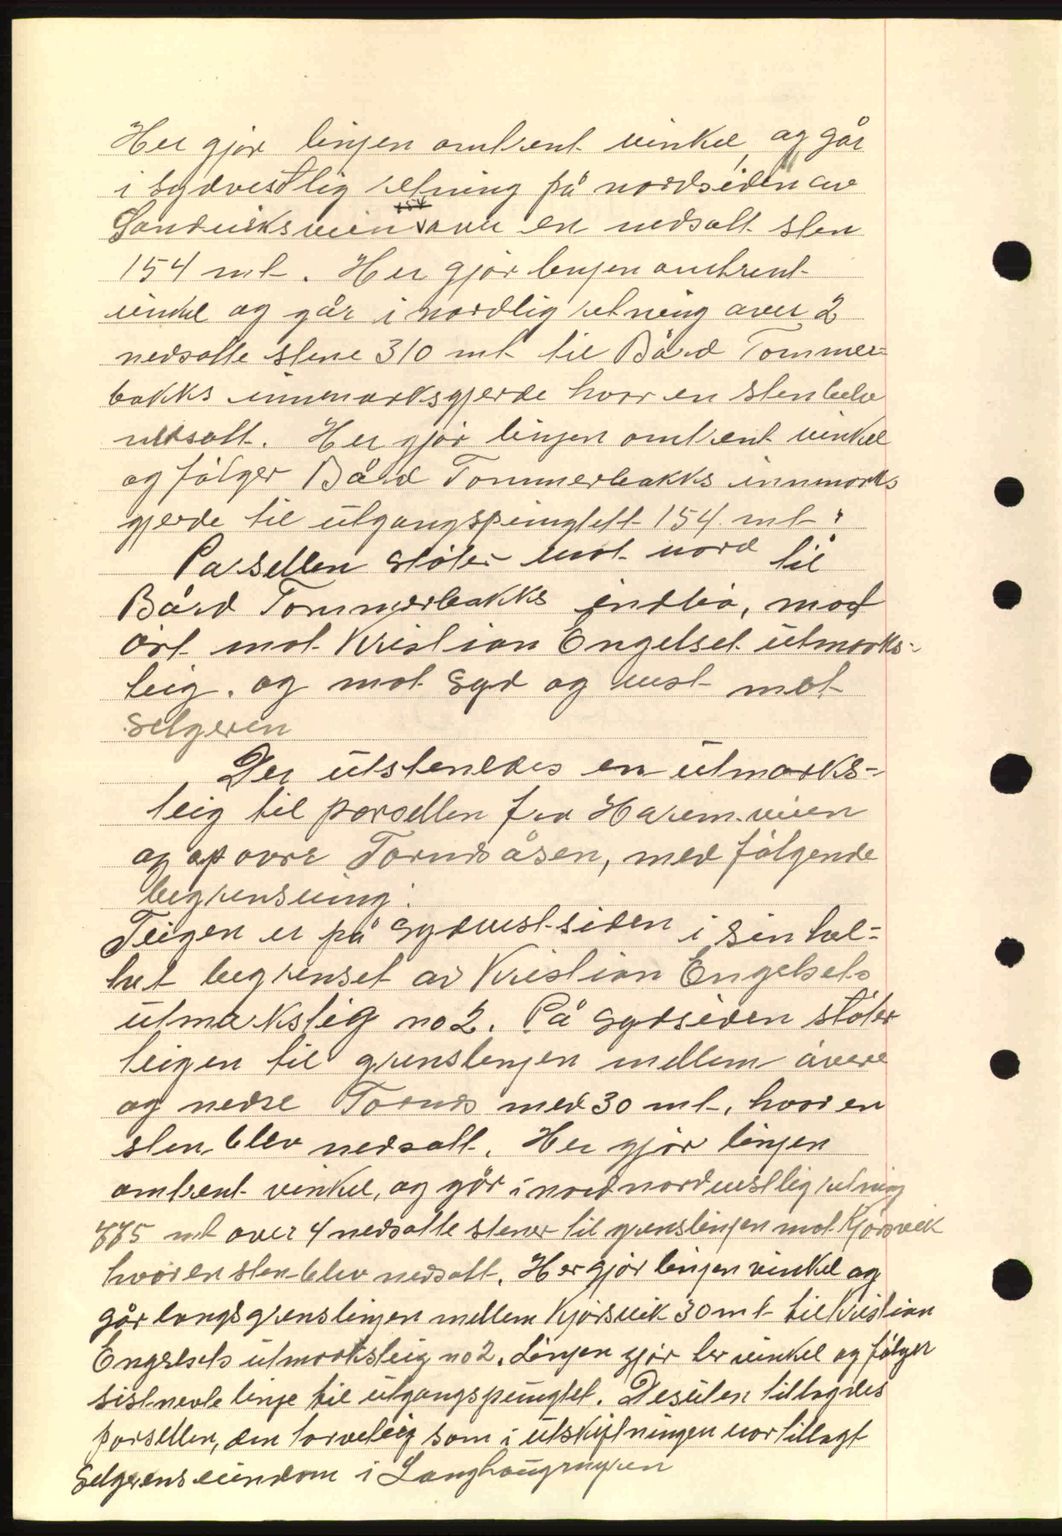 Her gjør linjen omtrent vinkel, og går
i sydvestlig retning på nordsiden av
Sandviksveien over en nedsatt sten
154 mt. Her gjør linjen omtrent
vinkel og går i nordlig retning over 2
nedsatte stene 310 mt til Bård Tommer=
bakks innmarksgjerde hvor en sten blev
nedsatt. Her gjør linjen omtrent vinkel
og følger Bård Tommerbakks innmarks
gjerde til utgangspungtett 154 mt.
Parsellen støter mot nord til
Bård Tommerbakks indbø, mod
øst mot Kristian Engelset utmarks-
teig. og mot syd og vest mot
selgeren
Der utstenedes en utmarks=
teig til parsellen fra Haremveien
og op øvre Tornesåsen, med følgende
begrensning:
Teigen er på sydvestsiden i sin hel=
het begrenset av Kristian Engelsets
utmarksteig no 2. På sydsiden støter
teigen til grenslinjen mellem øvere
og nedre Tornes med 30 mt, hvor en
sten blev nedsatt. Her gjør linjen
omtrent vinkel, og går i nordnordvestlig retning
775 mt over 4 nedsatte stener til grenslinjen mot Kjørsvik
hvor en sten blev nedsatt. Her gjør linjen vinkel og
går langs grenslinjen mellem Kjørsvik 30 mt til Kristian
Engelsets utmarksteig no 2. Linjen gjør her vinkel og følger
sistnevte linje til utgangspungtet. Desuten tillagdes
parsellen, den torvteig som i utskiftningen var tillagt
selgerens eiendom i Langhaugmyren